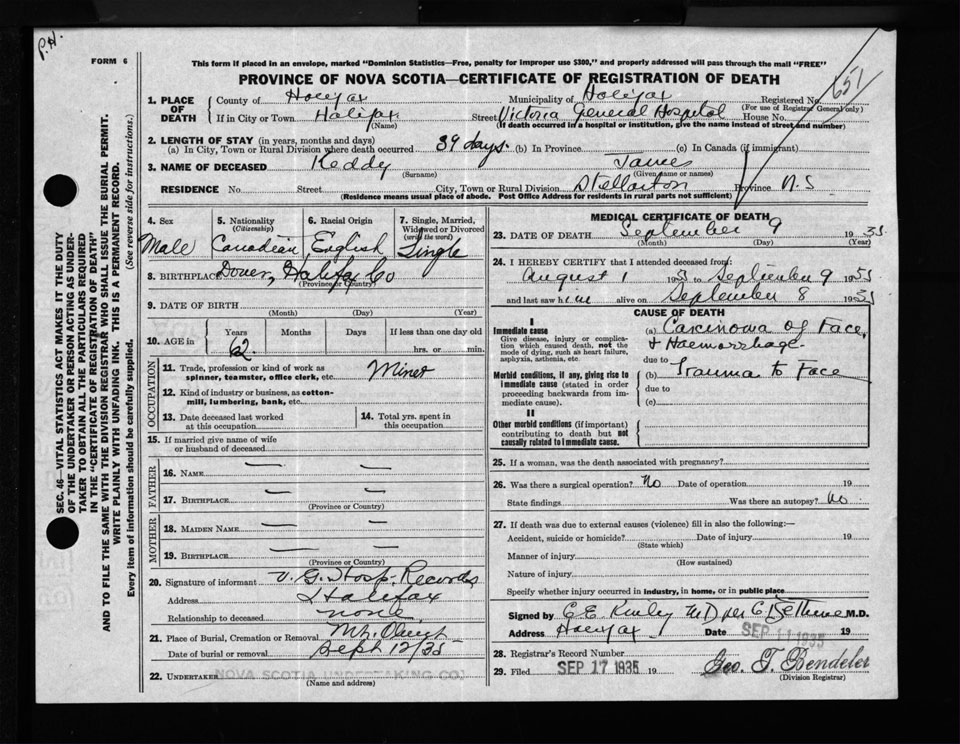 P.H.
FORM 6
This form if placed in an envelope, marked "Dominion Statistics—Free, penalty for improper use $300," and properly addressed will pass through the mail "FREE"
PROVINCE OF NOVA SCOTIA—CERTIFICATE OF REGISTRATION OF DEATH
651
SEC. 46—VITAL STATISTICS ACT MAKES IT THE DUTY
OF THE UNDERTAKER OR PERSON ACTING AS UNDER-
TAKER TO OBTAIN ALL THE PARTICULARS REQUIRED
IN THE "CERTIFICATE OF REGISTRATION OF DEATH"
AND TO FILE THE SAME WITH THE DIVISION REGISTRAR WHO SHALL ISSUE THE BURIAL PERMIT.
WRITE PLAINLY WITH UNFADING INK. THIS IS A PERMANENT RECORD.
Every item of information should be carefully supplied. (See reverse side for instructions.)
1. PLACE OF DEATH County of Halifax Municipality of Halifax Registered No.
(For use of Registrar General only)
If in City or Town Halifax Street Victoria General Hospital House No.
(Name) (If death occurred in a hospital or institution, give the name instead of street and number)
2. LENGTH OF STAY (in years, months and days)
(a) In City, Town or Rural Division where death occurred 39 days. (b) In Province (c) In Canada (if immigrant)
3. NAME OF DECEASED Keddy James
(Surname) (Given name or names)
RESIDENCE No. Street City, Town or Rural Division Stellarton Province N.S
(Residence means usual place of abode. Post Office Address for residents in rural parts not sufficient)
4. Sex 5. Nationality 6. Racial Origin 7. Single, Married,
(Citizenship) Widowed or Divorced
(write the word)
Male Canadian English Single
8. BIRTHPLACE Dover, Halifax Co
(Province or Country)
9. DATE OF BIRTH
(Month) (Day) (Year)
10. AGE in Years Months Days If less than one day old
62 hrs. or min.
OCCUPATION
11. Trade, profession or kind of work as Miner
spinner, teamster, office clerk, etc.
12. Kind of industry or business, as cotton-
mill, lumbering, bank, etc.
13. Date deceased last worked 14. Total yrs. spent in
at this occupation this occupation
15. If married give name of wife
or husband of deceased
FATHER
16. NAME — —
17. BIRTHPLACE — —
(Province or Country)
MOTHER
18. MAIDEN NAME — —
19. BIRTHPLACE — —
(Province or Country)
20. Signature of informant V. G. Hosp. Records
Address Halifax
Relationship to deceased none
21. Place of Burial, Cremation or Removal Mt. Olivet
Date of burial or removal Sept 12/35
22. UNDERTAKER NOVA SCOTIA UNDERTAKING CO.
(Name and address)
MEDICAL CERTIFICATE OF DEATH
23. DATE OF DEATH September 9 1935
(Month) (Day) (Year)
24. I HEREBY CERTIFY that I attended deceased from:
August 1 1935 to September 9 1935
and last saw him alive on September 8 1935
CAUSE OF DEATH
I
Immediate cause (a) Carcinoma of Face
Give disease, injury or complica- & Haemorrhage
tion which caused death, not the due to
mode of dying, such as heart failure,
asphyxia, asthenia, etc.
Morbid conditions, if any, giving rise to (b) Trauma to Face
immediate cause (stated in order due to
proceeding backwards from im- (c)
mediate cause).
II
Other morbid conditions (if important)
contributing to death but not
causally related to immediate cause.
25. If a woman, was the death associated with pregnancy?
26. Was there a surgical operation? No Date of operation 19
State findings Was there an autopsy? No
27. If death was due to external causes (violence) fill in also the following:—
Accident, suicide or homicide? Date of injury 19
(State which)
Manner of injury
(How sustained)
Nature of injury
Specify whether injury occurred in industry, in home, or in public place
Signed by C E M.D per C Bethune M.D.
Address Halifax Date SEP 11 1935 19
28. Registrar's Record Number
29. Filed SEP 17 1935 19 Geo. T. Bendeler
(Division Registrar)